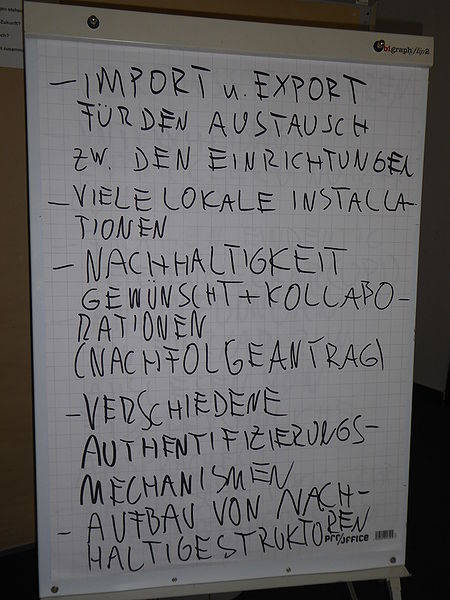 Zukunft?
ctgraph/flip2
– IMPORT u. EXPORT
FÜR DEN AUSTAUSCH
ZW. DEN EINRICHTUNGEN
– VIELE LOKALE INSTALLA-
TIONEN
– NACHHALTIGKEIT
GEWÜNSCHT + KOLLABO-
RATIONEN
(NACHFOLGEANTRAG)
– VERSCHIEDENE
AUTHENTIFIZIERUNGS-
MECHANISMEN
– AUFBAU VON NACH-
HALTIGESTRUKTOREN
PRO/OFFICE